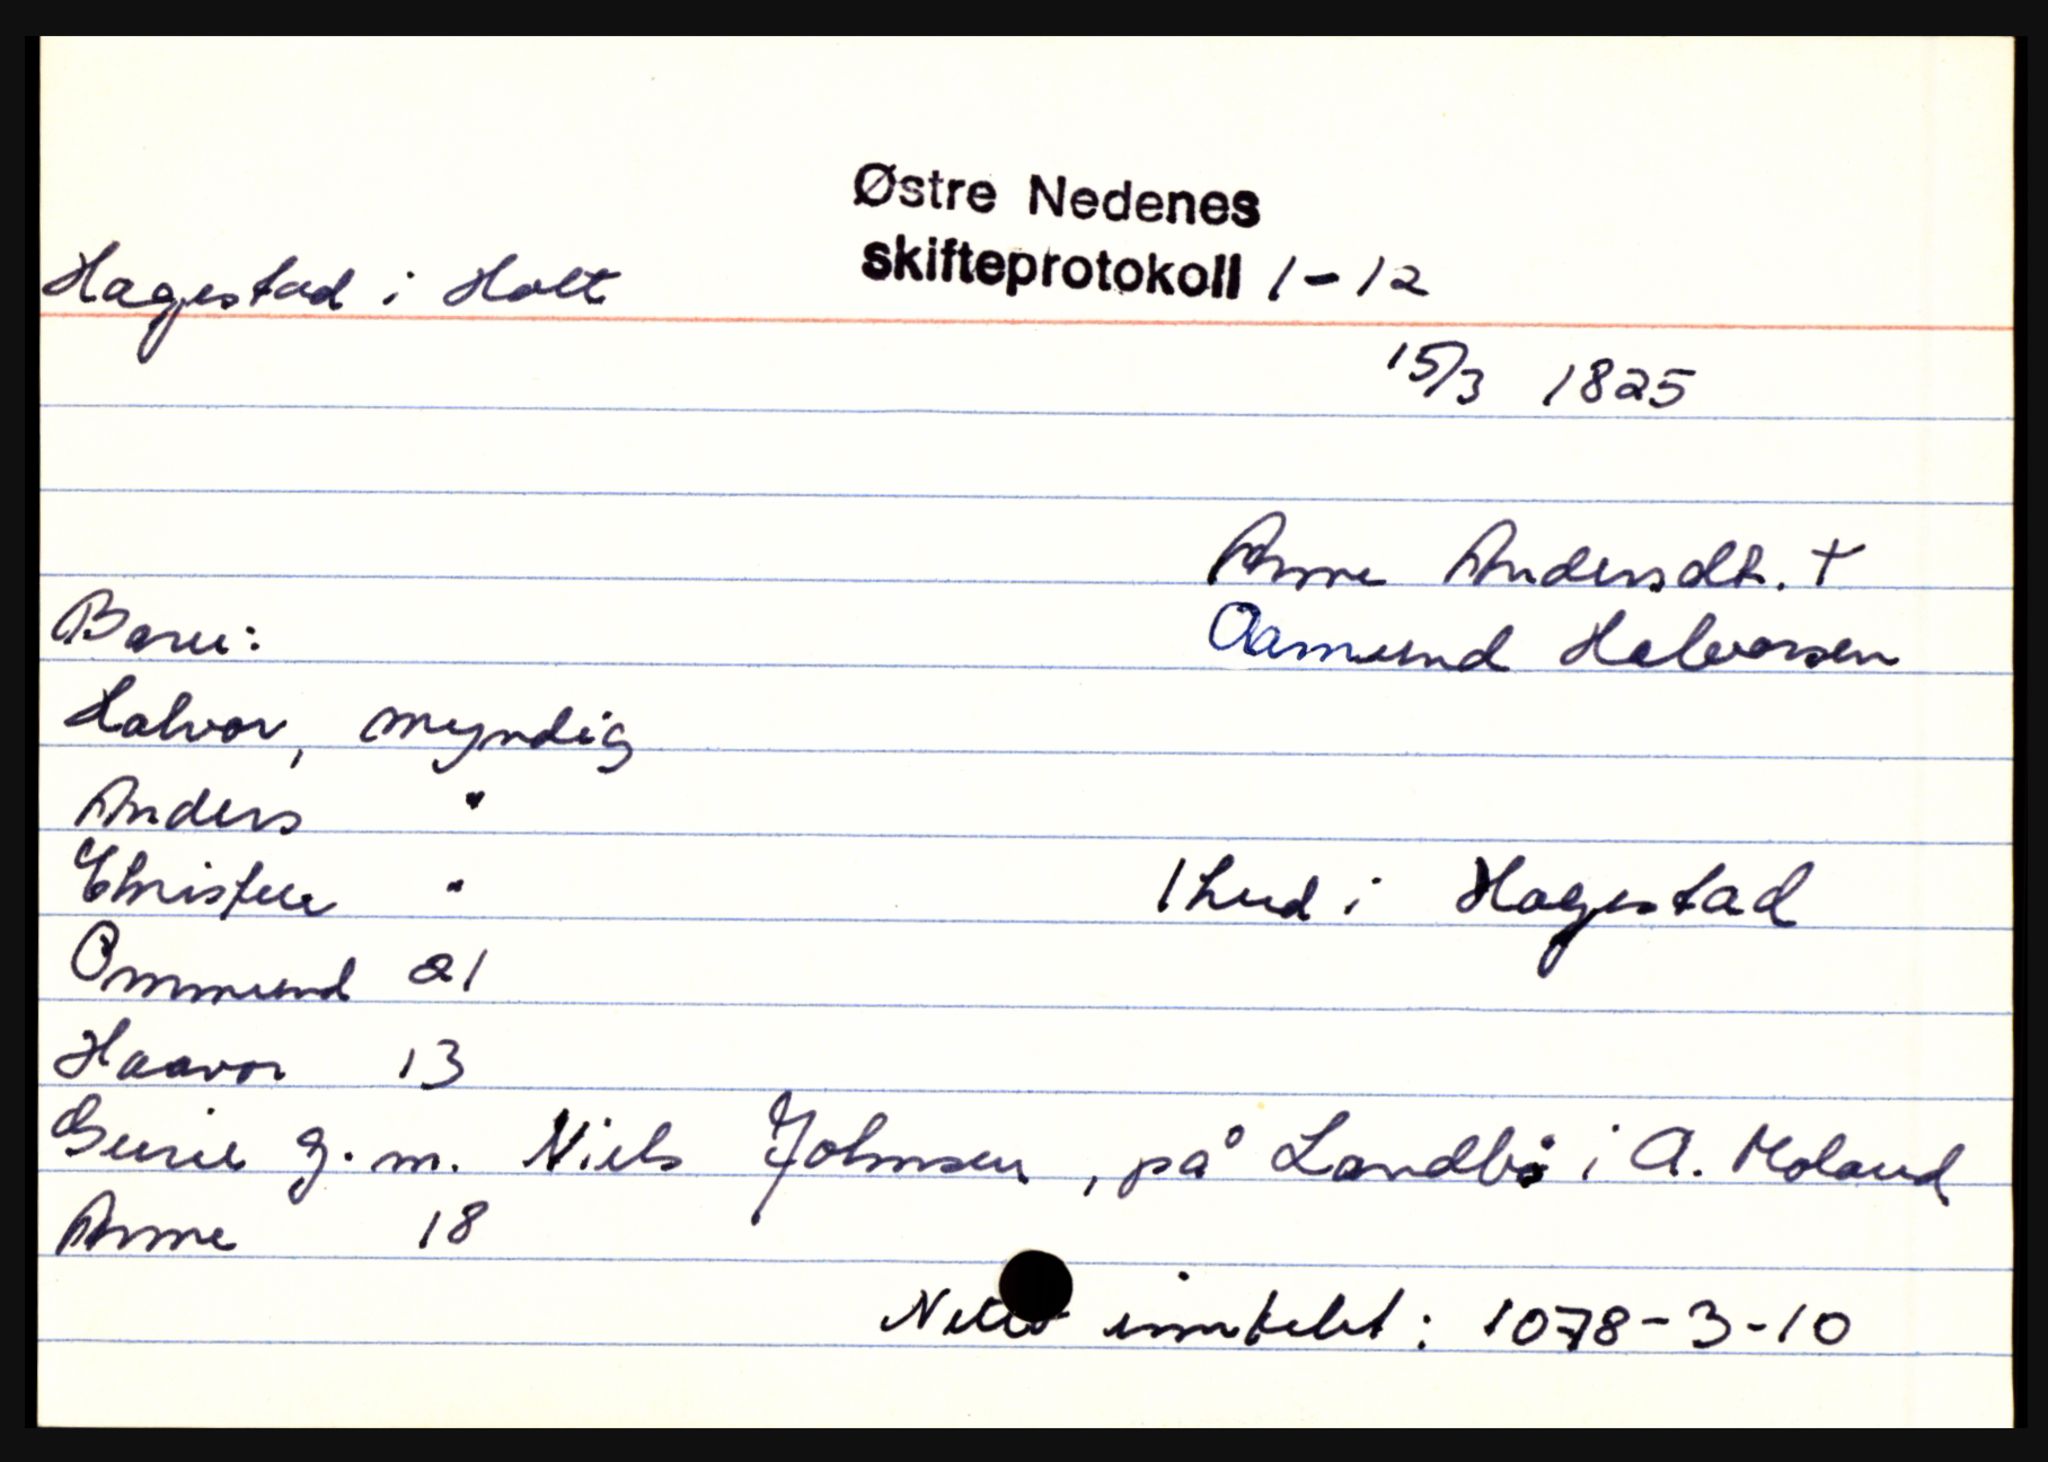 Østre Nedenes
skifteprotokoll 1-12
Hagestad i Holt
15/3 1825
Anne Andersdtr. +
Barn:
Aamund Halvorsen
Halvor, myndig
Anders "
Christen "
1 hud i Hagestad
Ommund 21
Haavor 13
Gurie g.m. Niels Johnsen, på Landbø i A. Moland
Anne 18
Netto inntekt: 1078-3-10